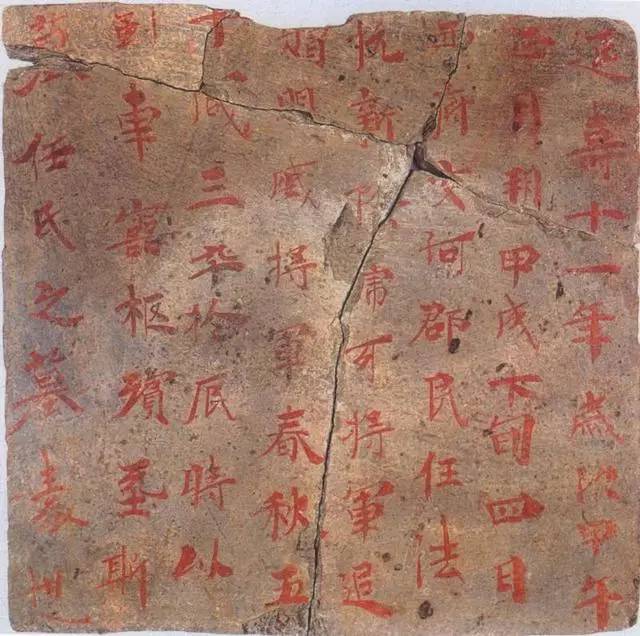 延壽十一年歲次甲午
月朔甲戌下旬四日
交河郡民任法
悅新除虎牙將軍追
贈明威將軍春秋五
十咸三卒於辰時以
剉車靈柩殯塟斯
墓任氏之墓表也